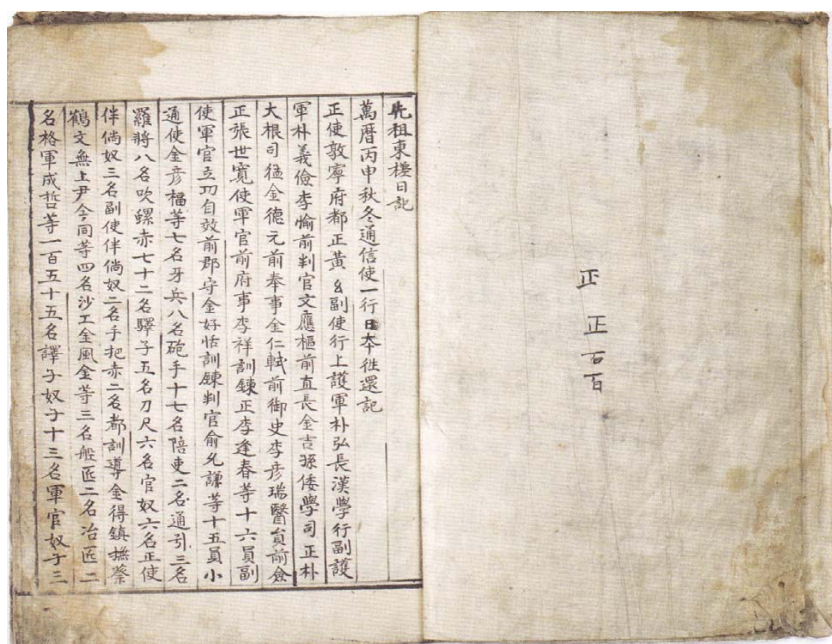 正
正
石
百
先祖東槎日記
萬曆丙申秋冬通信使一行日本徃還記
正使敦寧府都正黃 幺副使行上護軍朴弘長漢學行副護
軍朴義儉李愉前判官文應樞前直長金吉孫倭學司正朴
大根司猛金德元前奉事金仁軾前御史李彦瑞醫員前僉
正張世寬使軍官前府事李祥訓鍊正李逢春等十六員副
使軍官立功自效前郡守金好恬訓鍊判官俞允謙等十五員小
通使金彦福等七名牙兵八名砲手十七名陪吏二名通引三名
羅將八名吹螺赤七十二名驛子五名刀尺六名官奴六名正使
伴倘奴三名副使伴倘奴二名手把赤二名都訓導金得鎮蔡
鶴文無上尹今同等四名沙工金風金等三名般匠二名冶匠二
名格軍成哲等一百五十五名譯子奴子十三名軍官奴子三